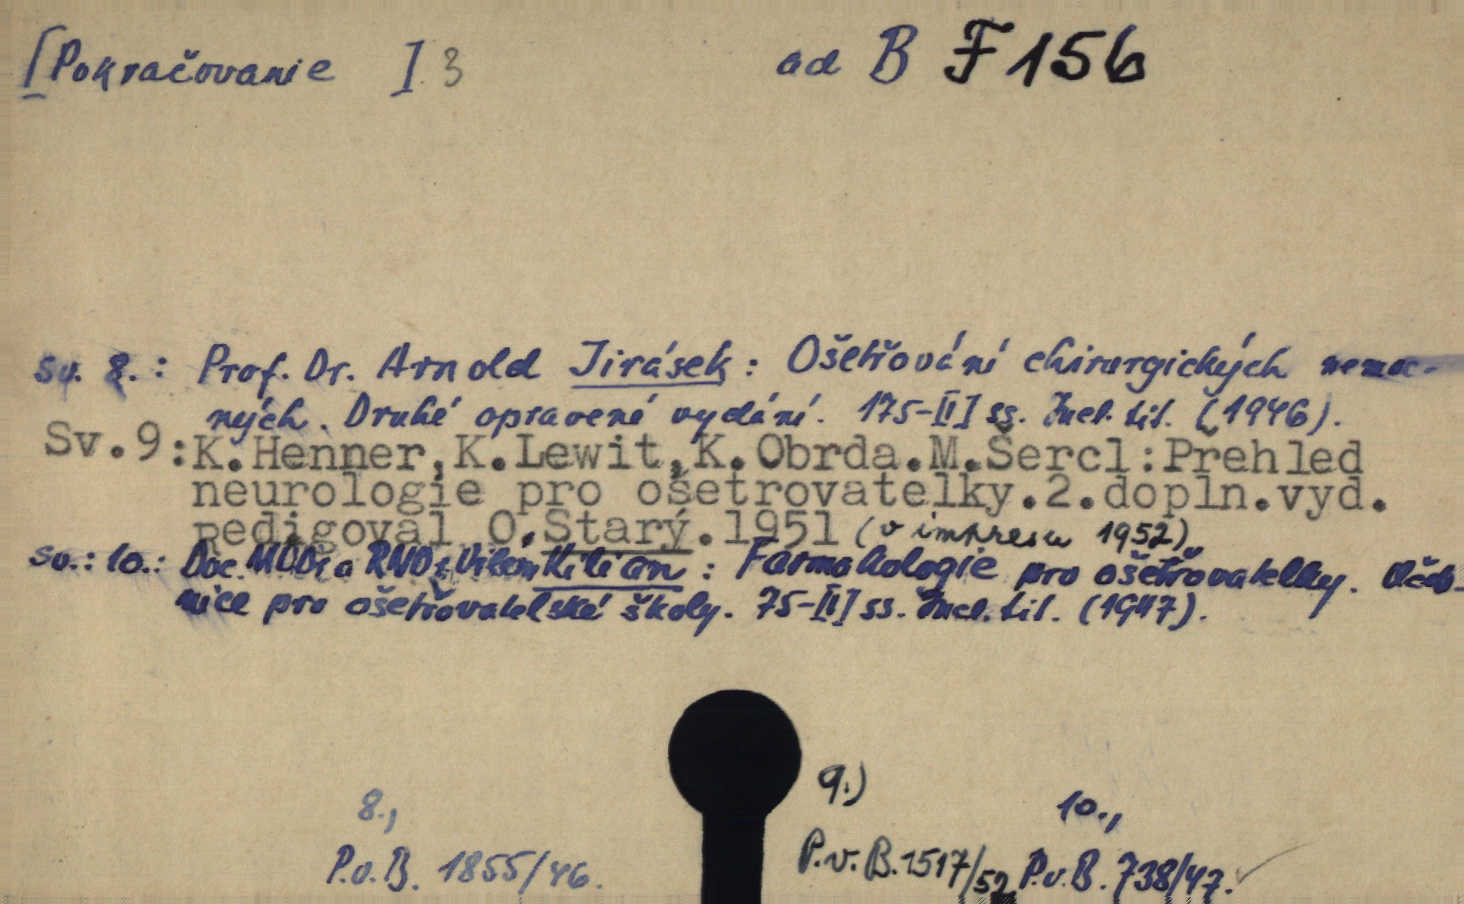 [Pokračovanie ] 3 ad B F 156
Sv. 8.: Prof. Dr. Arnold Jirásek: Ošetřování chirurgických nemoc-
ných. Druhé opravené vydání. 175-[I] ss. Incl. tit. (1946).
Sv.9: K.Henner,K.Lewit,K.Obrda.M.Šercl:Přehled
neurologie pro ošetrovatelky.2.dopln.vyd.
redigoval O.Starý.1951 (v impresu 1952)
Sv.: 10.: Doc. MUDr a RNDr Vilém Kilian: Farmakologie pro ošetřovatelky. Učeb-
nice pro ošetřovatelské školy. 75-[I] ss. Incl. tit. (1947).
8., 9.) 10.,
P.v.B. 1855/46. P.v.B.1517/52 P.v.B. 738/47.